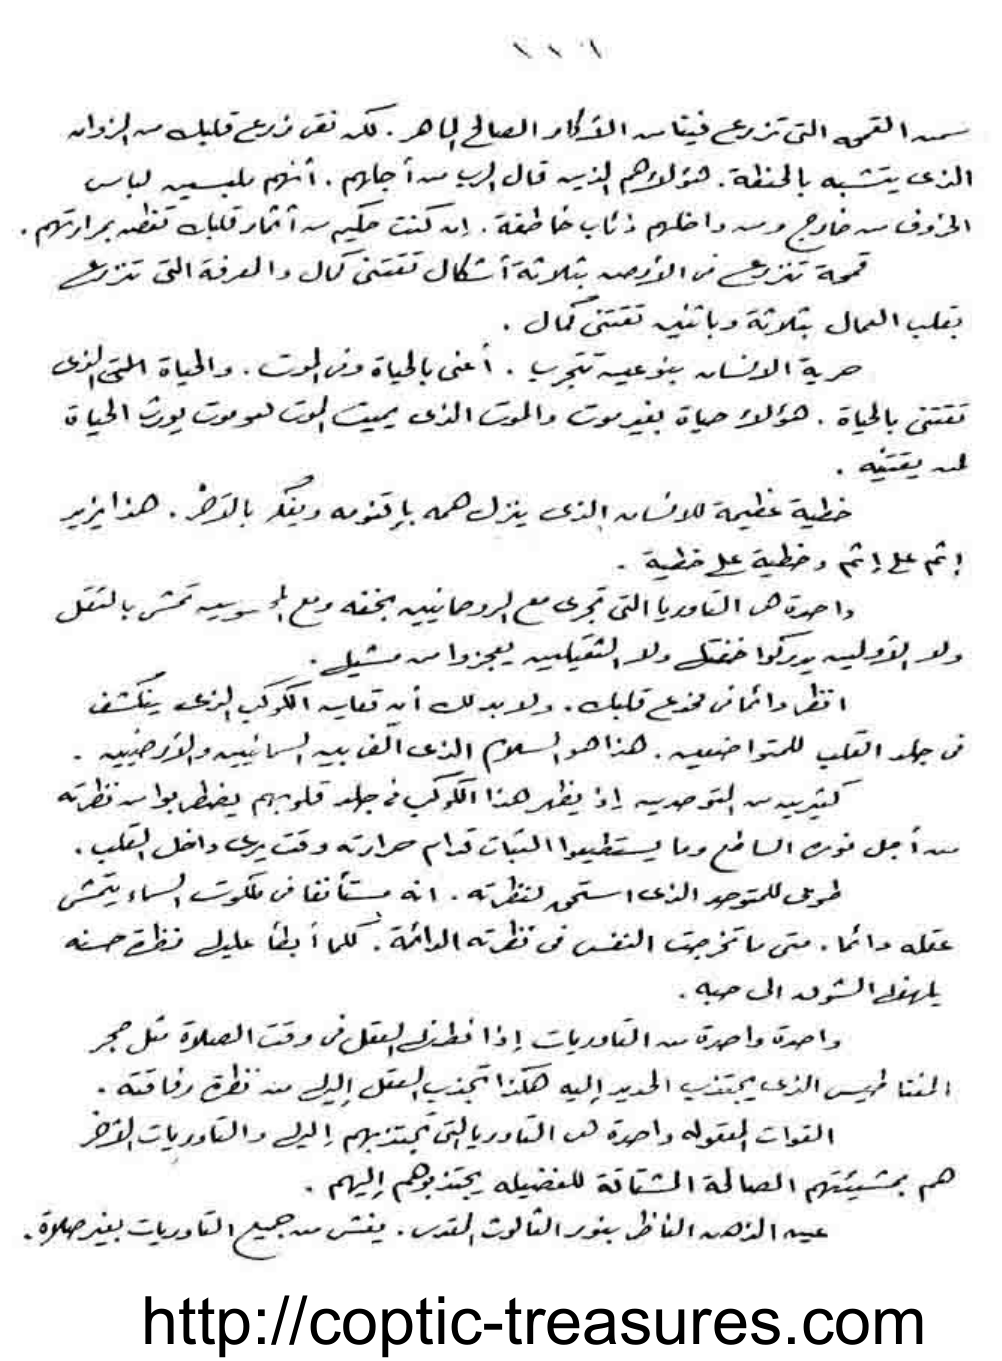 سمن القمح التى تزرع فينا من الأكار الصالح الماهر . لكن نقى زرع قلبك من الزوان
الذى يتشبه بالحنطة . هؤلاء هم الذين قال الرب من أجلهم . أنهم ملبسين لباس
الخروف من خارج ومن داخلهم ذئاب خاطفة . إن كنت حكيم من أثمار قلبك تفطن بمرارتهم .
قمحة تنزرع فى الأرض بثلاثة أشكال تقتنى كمال والمعرفة التى تنزرع
بقلب العمال بثلاثة وباثنين تقتنى كمال .
حرية الانسان بنوعين تتجرب . أعنى بالحياة وفى الموت . والحياة التى
تقتنى بالحياة . هؤلاء حياة بغير موت والموت الذى يميت الموت هو موت يورث الحياة
لمن يقتنيه .
خطية عظيمة للانسان الذى ينزل همه بإقنومه ويفكر بالآخر . هذا يزيد
إثم على إثم وخطية على خطية .
واحدة هى التاوريا التى تجرى مع الروحانيين بخفة ومع تمشى بالثقل
ولا الأولين يدركوا خفتك ولا الثقيلين يعجزوا من مشيك .
انظر دائما فى مخدع قلبك . ولا بد لك أن تعاين الكوكب الذى ينكشف
فى جلد القلب للمتواضعين . هذا هو السلام الذى ألف بين السمائيين والأرضيين .
كثيرين من المتوحدين إذ يظهر هذا الكوكب فى جلد قلوبهم يضطربوا من نظرته
من أجل نوره الساطع وما يستطيعوا الثبات قدام حرارته وقت يرى داخل القلب .
طوبى للمتوحد الذى استحق لنظرته . انه فى ملكوت السماء يتمشى
عقله دائما . متى ما تخرجت النفس فى نظرته الدائمة . كلما أبطأ عليك نظرة حسنه
يلهفك الشوق الى حبه .
واحدة واحدة من التاوريات إذا نظرك العقل فى وقت الصلاة مثل حجر
المغناطيس الذى يجتذب الحديد إليه هكذا تجذب العقل إليك من نظرة رفاقته .
القوات المعقوله واحدة هى التاوريا التى تجتذبهم إليك والتاوريات الأخر
هم بمشيئتهم الصالحة المشتاقة للفضيله يجتذبوهم إليهم .
عين الذهن الناظر بنور الثالوث المقدس . يفتش من جميع التاوريات بغير صلاة .
http://coptic-treasures.com